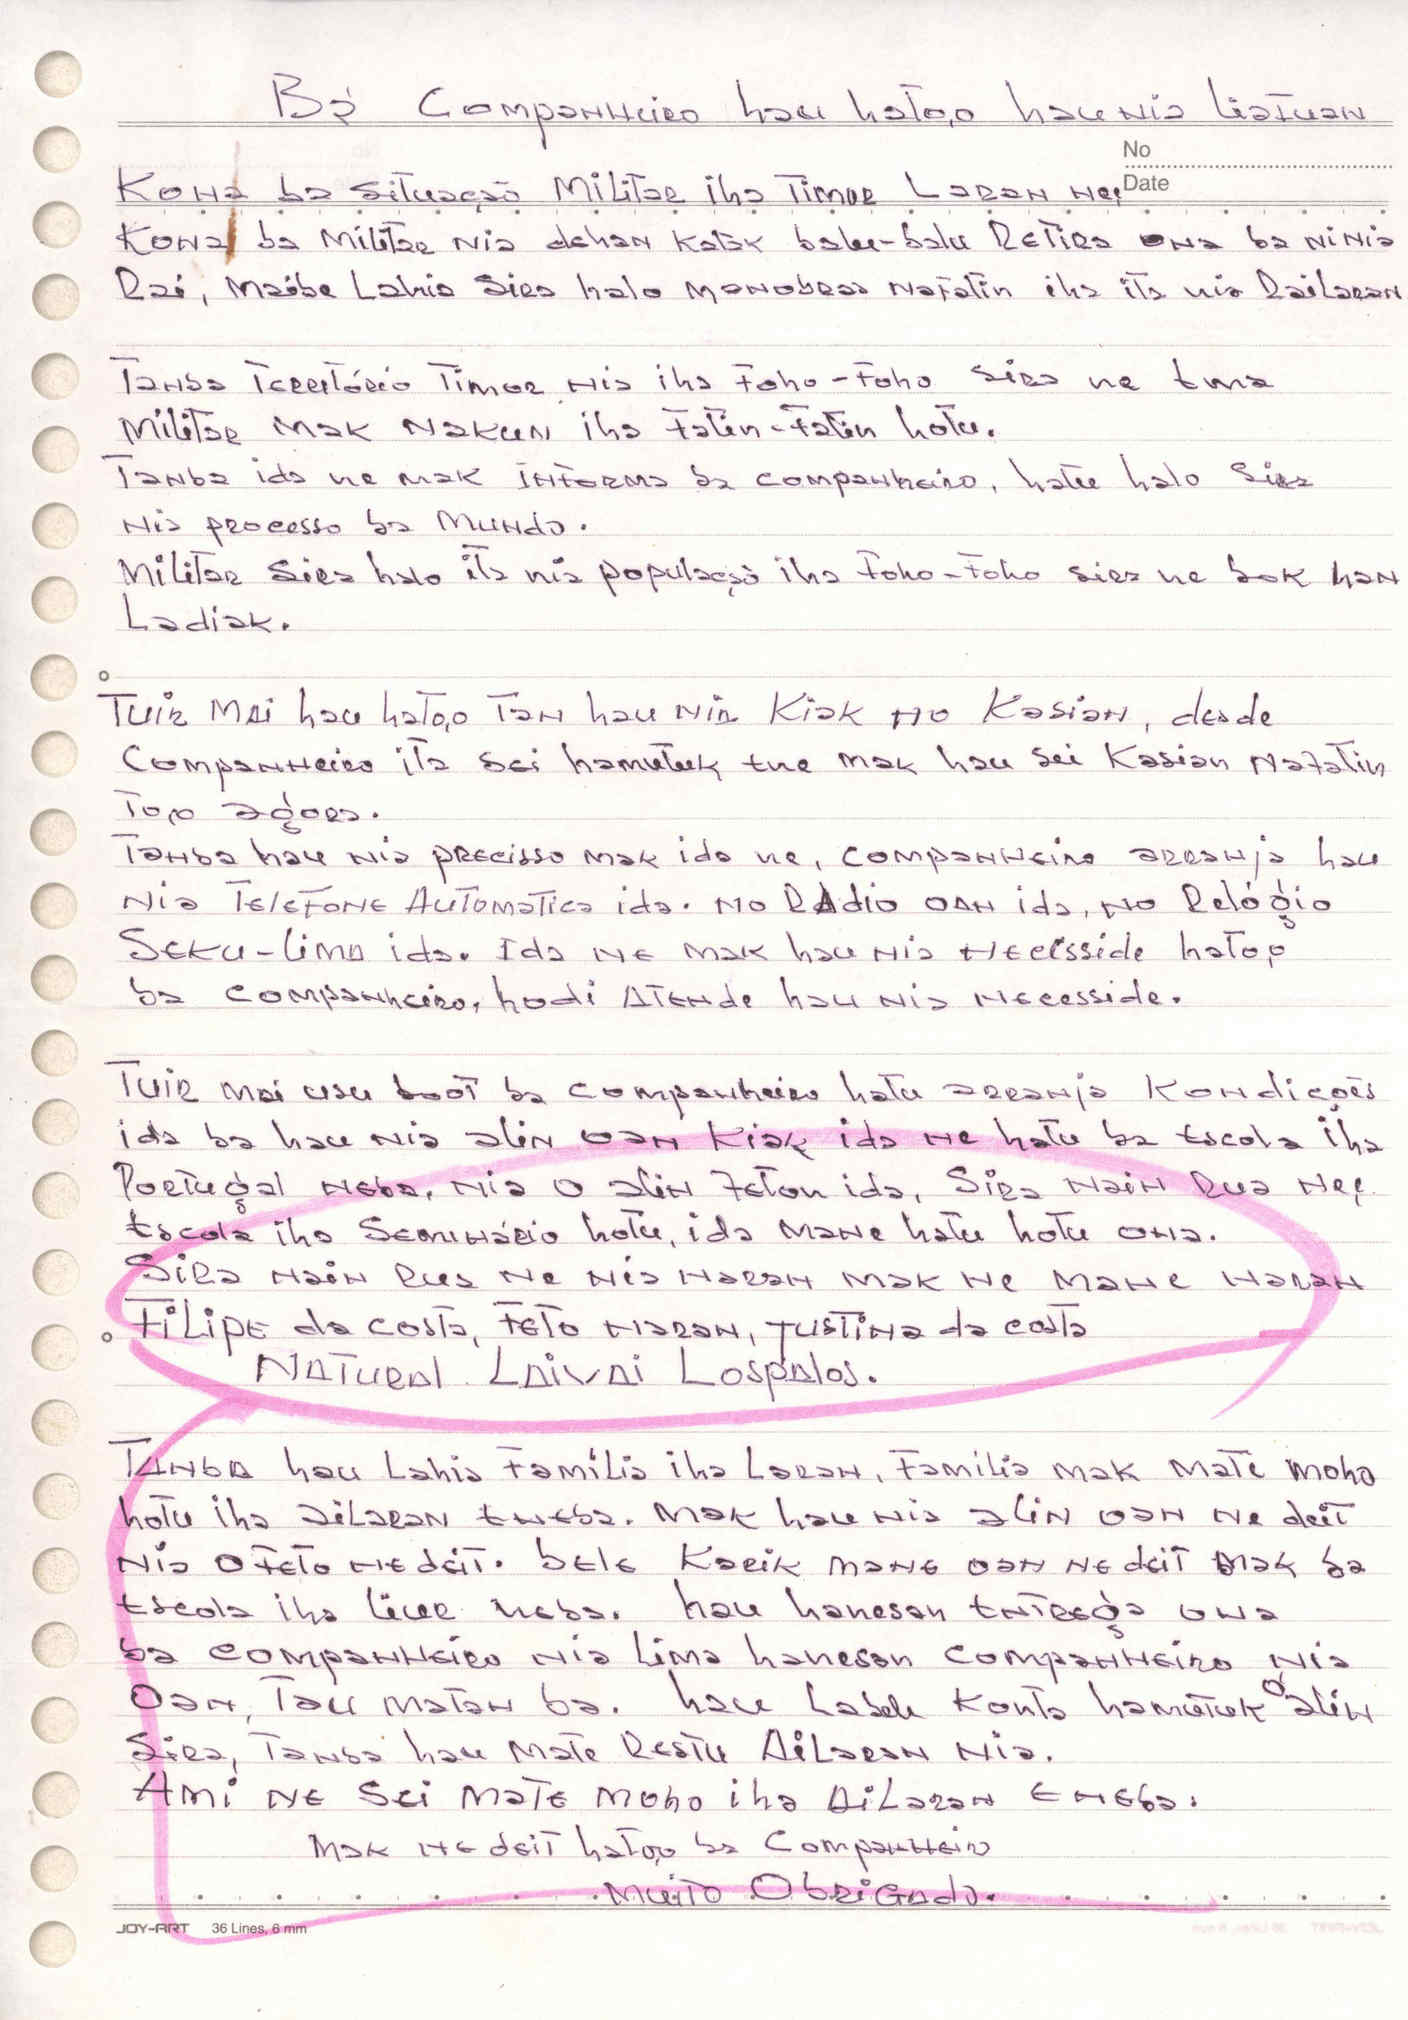 Bá Companheiro hau hato,o hau nia liafuan
No
Date
Kona ba situação Militar iha Timor Laran ne,
Kona ba Militar nia dehan katak balu-balu Retira ona ba ninia
Rai, Maibe Lahia Sira halo manobras nafatin iha ita nia RaiLaran
Tanba Território Timor nia iha Foho-Foho sira ne ema
Militar mak nakun iha Fatin-Fatin hotu.
Tanba ida ne mak informa ba companheiro, hatu halo Sira
nia processo ba Mundo.
Militar Sira halo ita nia população iha Foho-Foho sira ne bok han
Ladiak.
Tuir Mai hau hato,o Tan hau nia Kiak no Kasian, desde
Companheiro ita sei hamutuk ene mak hau sei Kasian Nafatin
To,o agora.
Tanba hau nia precisso mak ida ne, companheiro arranja hau
Nia Telefone Automatica ida. no Rádio oan ida, no Relógio
Seku-lima ida. Ida ne mak hau nia necisside hato,o
ba companheiro, hodi Atende hau nia necesside.
Tuir mai usu boot ba companheiro hatu arranja Kondições
ida ba hau nia alin oan Kiak ida ne hatu ba Escola iha
Portugal neba, nia o alin feton ida, Sira nain Rua ne,
Escola iha Seminário hotu, ida mane hatu hotu ona.
Sira nain Rua ne nia naran mak ne mane naran
Filipe da costa, Feto naran, Justina da costa
Natural Laivai Lospalos.
Tanba hau Lahia Familia iha Laran, Familia mak mate moho
hotu iha aiLaran eneba. mak hau nia alin oan ne deit
nia o feto ne deit. bele Karik mane oan ne deit mak ba
Escola iha liur neba. hau hanesan entrega ona
ba companheiro nia lima hanesan companheiro nia
oan, Tau matan ba. hau Labele konta hamutuk o alin
sira, Tanba hau mate Restu AiLaran nia.
Ami ne sei mate moho iha AiLaran eneba.
Mak ne deit hato,o ba Companheiro
Muito Obrigado.
JOY-ART 36 Lines, 6 mm